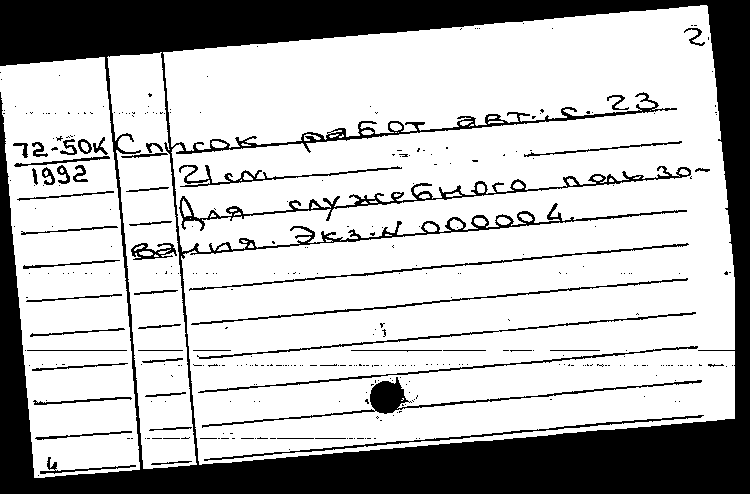 2
72-50К Список работ авт.: с. 23
1992 21 см.
Для служебного пользо-
вания. Экз. N 000004.
4